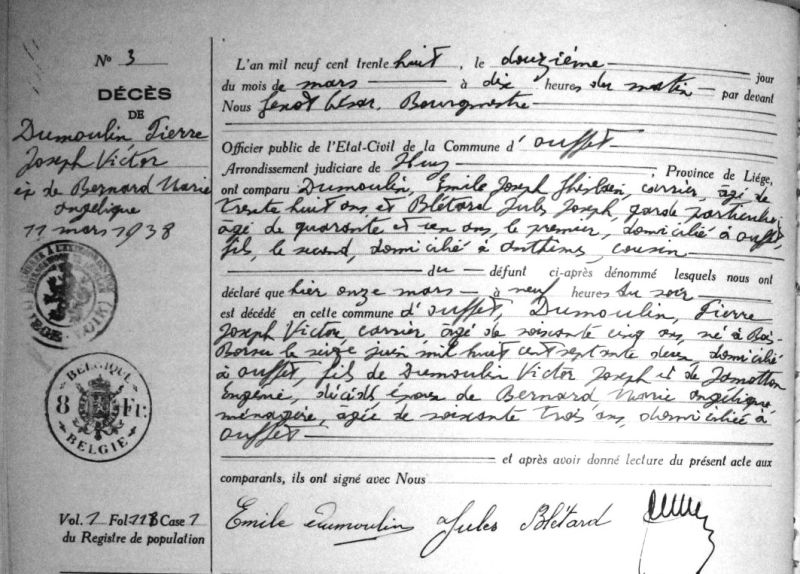 N° 3
DÉCÈS
DE
Dumoulin Pierre
Joseph Victor
ép de Bernard Marie
Angélique
11 mars 1938
BELGIQUE
8 Fr.
BELGIE
Vol. 1 Fol 118 Case 1
du Registre de population
L'an mil neuf cent trente huit, le douzième jour
du mois de mars à dix heures du matin par devant
Nous César, Bourgmestre
Officier public de l'Etat-Civil de la Commune d' Ouffet
Arrondissement judiciaire de Huy, Province de Liége,
ont comparu Dumoulin, Emile Joseph Ghislain, carrier, âgé de
trente huit ans et Blétard Jules Joseph, garde particulier
âgé de quarante et un ans, le premier, domicilié à Ouffet,
fils, le second, domicilié à Anthisnes, cousin
du défunt ci-après dénommé lesquels nous ont
déclaré que hier onze mars à neuf heures du soir
est décédé en cette commune d'Ouffet, Dumoulin, Pierre
Joseph Victor, carrier, âgé de soixante cinq ans, né à Bois-
Borsu le seize juin mil huit cent septante deux, domicilié
à Ouffet, fils de Dumoulin Victor Joseph et de Jamotton
Eugénie, décédés époux de Bernard Marie Angélique
ménagère, âgée de soixante trois ans, domiciliée à
Ouffet
et après avoir donné lecture du présent acte aux
comparants, ils ont signé avec Nous
Emile Dumoulin Jules Blétard